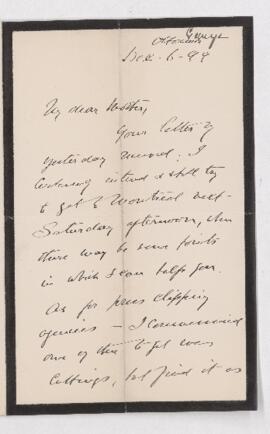 Ottawa
Dec. 6-99
My dear
Your letter of
yesterday received. I
certainly intend & still try
to get to Montreal next
Saturday afternoon, when
there may be some points
in which I can help you.
As for press clipping
agencies - I commissioned
one of them to get war
cuttings, but find it is